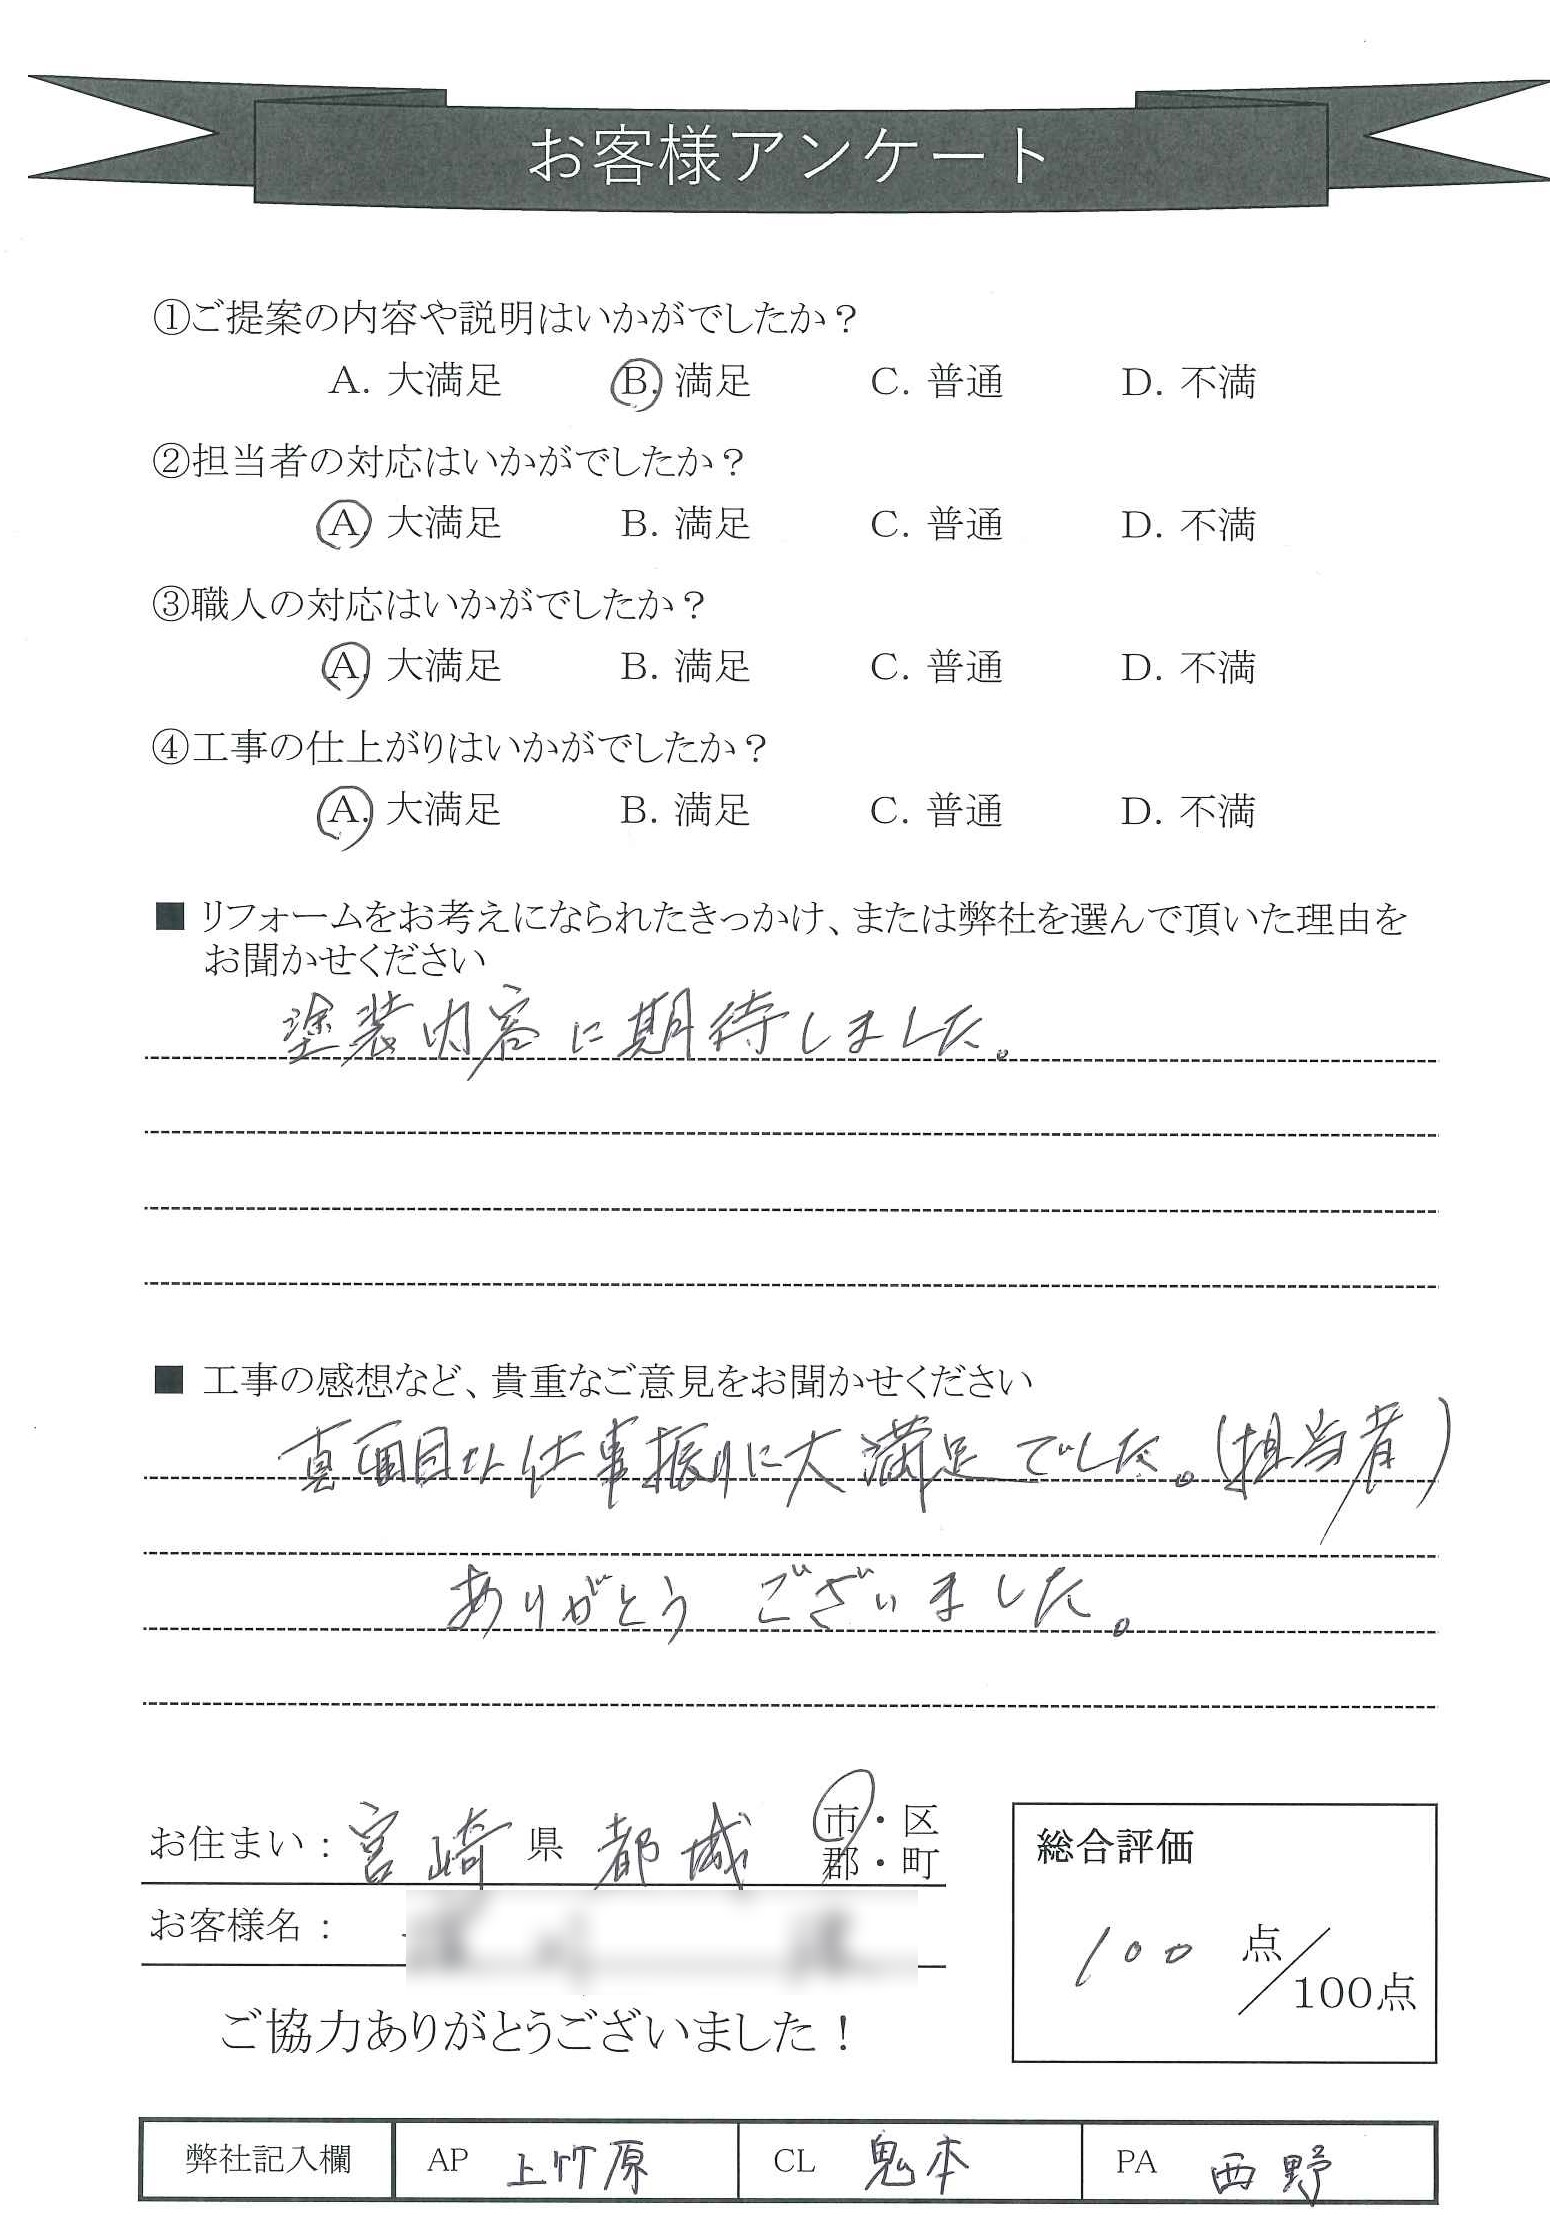 お客様アンケート
①ご提案の内容や説明はいかがでしたか？
A. 大満足 B. 満足 C. 普通 D. 不満
②担当者の対応はいかがでしたか？
A. 大満足 B. 満足 C. 普通 D. 不満
③職人の対応はいかがでしたか？
A. 大満足 B. 満足 C. 普通 D. 不満
④工事の仕上がりはいかがでしたか？
A. 大満足 B. 満足 C. 普通 D. 不満
■ リフォームをお考えになられたきっかけ、または弊社を選んで頂いた理由を
お聞かせください
塗装内容に期待しました。
■ 工事の感想など、貴重なご意見をお聞かせください
真面目な仕事振りに大満足でした。(担当者)
ありがとうございました。
お住まい： 宮崎 県 都城 市・区
郡・町
お客様名：
総合評価
100 点／100点
ご協力ありがとうございました！
弊社記入欄 AP 上竹原 CL 鬼本 PA 西野